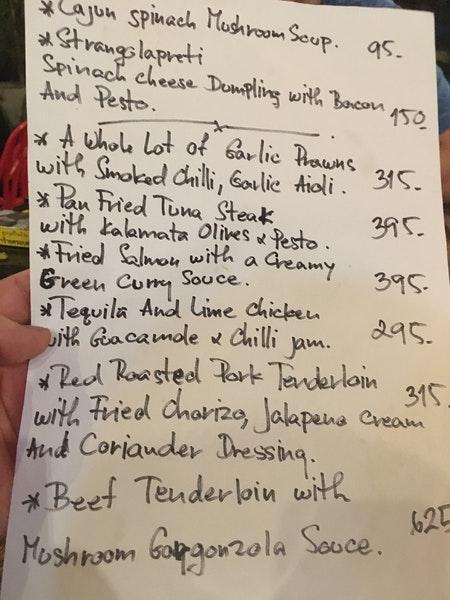 *Cajun spinach Mushroom Soup. 95.-
*Strangolapreti
Spinach cheese Dumpling with Bacon
And Pesto. 150
* A Whole Lot of Garlic Prawns
with Smoked Chilli, Garlic Aioli. 315-
*Pan Fried Tuna Steak
with Kalamata Olives & Pesto. 395-
*Fried Salmon with a Creamy
Green Curry Sauce. 395-
*Tequila And Lime Chicken
with Guacamole & Chilli jam. 295-
*Red Roasted Pork Tenderloin
with Fried Chorizo, Jalapeno Cream 315.
And Coriander Dressing.
*Beef Tenderloin with
Mushroom Gorgonzola Sauce. 625